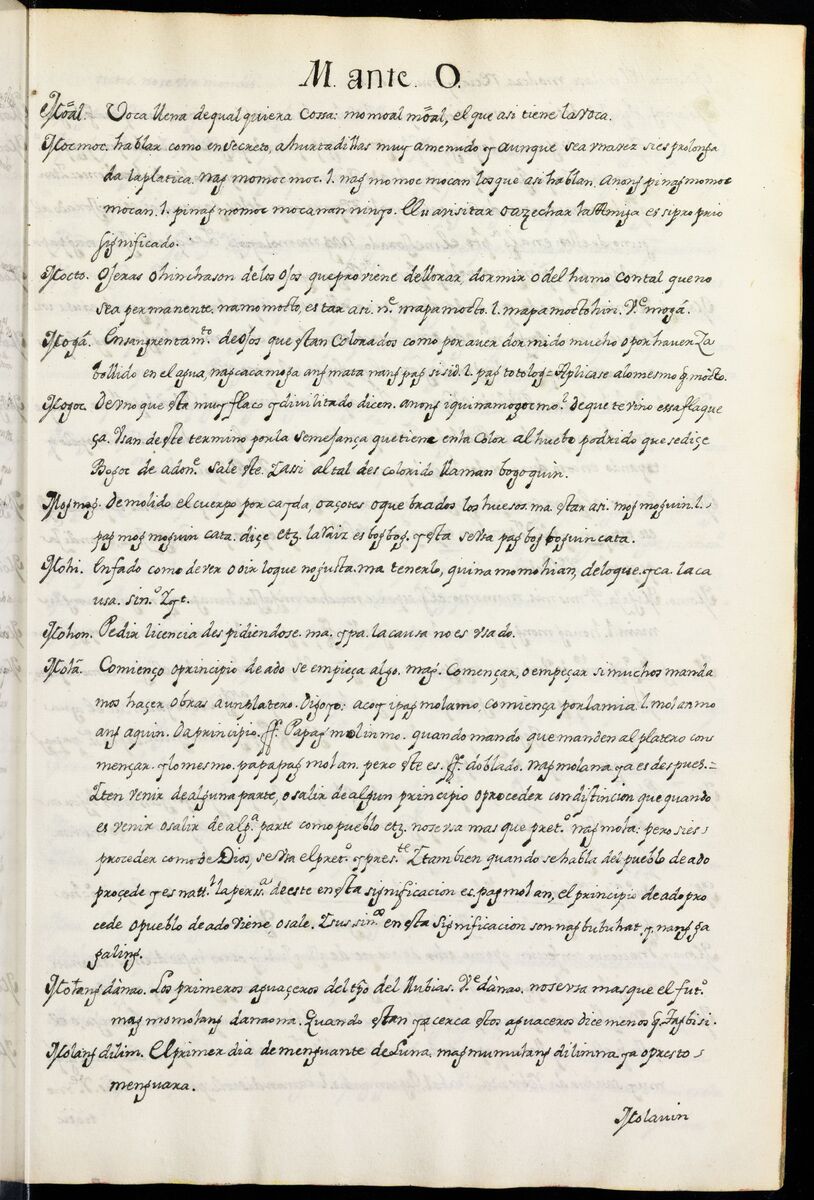 M. ante. O.
Mõal. Voca llena de qual quiera cossa: momoal mõal, el que asi tiene la voca.
Mocmoc. hablar como en secreto, a hurtadillas muy amenudo y aunque sea vna vez si es prolonga
da la platica. nag momoc moc. l. nag momoc mocan los que asi hablan. anong pinag momoc
mocan. l. pinag momoc mocanan ninyo. El uarisitar o azechar la Amiga es si pro prio
significado.
Mocto. Ojeras o hinchason de los ojos que proviene dellorar, dormir o del humo con tal que no
sea permanente. namomocto, estar asi. n.e mapamocto. l. mapamoctohin. V.e mogá.
Mogá. Ensangrentam.to de ojos que estan Colorados como por auer dormido mucho o por haver Za
bullido en el agua, nagcacamoga ang mata nang pag sisid. l. pag totolog = Aplicase alomesmo q mocto.
Mogoc. De vno que esta muy flaco y divilitado dicen. anong iquinamogocmo? de que te vino essa flaque
ça. Vsan de este termino por la semejança que tiene en la Color al huebo podrido que se diçe
Bogoc de adon.e sale este. Y assi al tal des colorido llaman bogoquin.
Mogmog. Demolido el cuerpo por cayda, o açotes o que brados los huesos. ma. estar asi. mogmoguin. l.
pag mog moguin cata. diçe etz. la raiz es bogbog. y esta se vsa pag bog boguin cata.
Mohi. Enfado como de ver o oir lo que no gusta. ma tenerlo, quina momohian, de lo que. yca. la ca
usa. sin.o Ygt.
Mohon. Pedir licencia des pidiendose. ma. ypa. la causa no es vsado.
Molá. Comienço o principio de ado se empieça algo. mag. Començar, o empeçar si muchos manda
mos haçer obras a un platero. Digo yo: acoy ipag molamo, comiença por la mia l. molanmo
ang aquin. Da principio. ff. Papag molinmo. quando mando que manden al platero con
mençar. y lo mesmo. papapag molan. pero este es. ff. doblado. nagmolana ya es despues. =
Yten venir de alguna parte, o salir de algun principio o proceder con distincion que quando
es venir o salir de alg.a parte como pueblo etz. no se vsa mas que pret.o nag mola: pero si es
proceder como de Dios, se vsa el pret.o y pres.te Y tambien quando se habla del pueblo de ado
proçede y es natt.l la pers.a de este en esta significacion es. pag molan, el principio de ado pro
cede o pueblo de ado viene o sale. Y sus sin.os en esta significacion son nag bubuhat. y. nang ga
galing.
Molang dánao. Los primeros aguaçeros del tpo del llubias. V.e dánao. no se vsa mas que el fut.o
mag momolang danaona. Quando estan ya cerca estos aguaceros dice menos q. Tagbisi.
Molang dilim. El primer dia de menguante de Luna. mag mumulang dilimna ya o presto
menguara.
Molauin